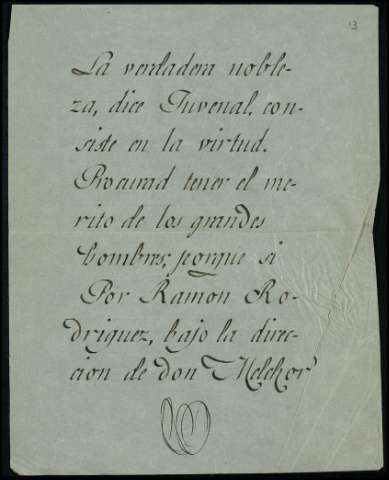 13
La verdadera noble-
za, dice Juvenal, con-
siste en la virtud.
Procurad tener el me-
rito de los grandes
hombres; porque si
Por Ramon Ro-
driguez, bajo la direc-
cion de don Melchor